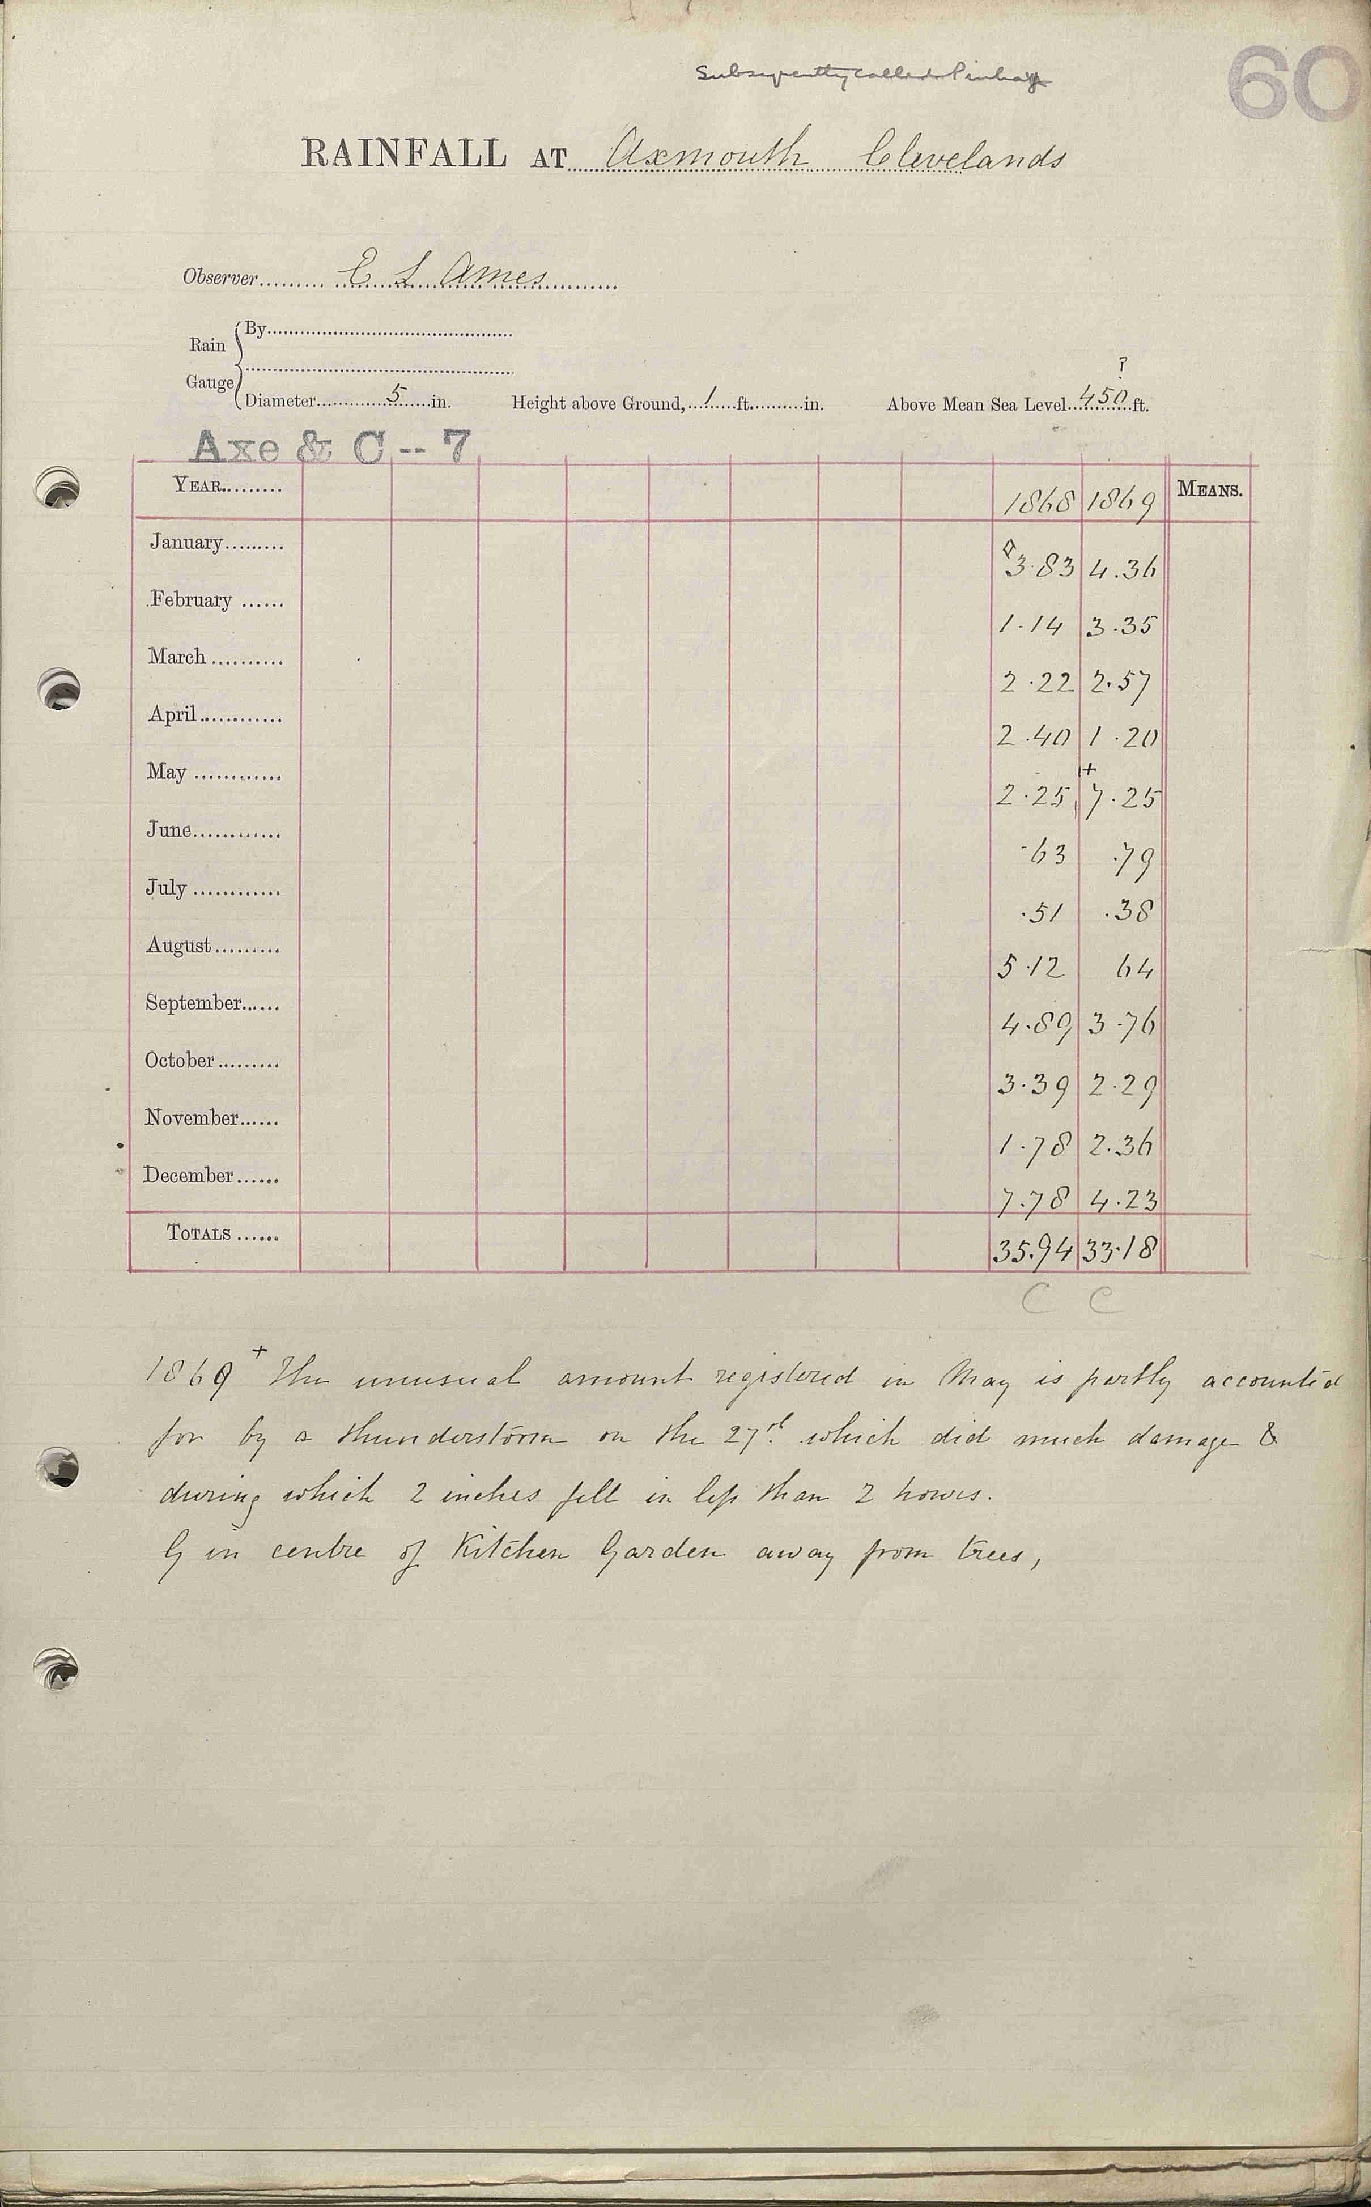 Subsequently called Pinhay
60
RAINFALL AT Axmouth Clevelands
Observer E L Ames
Rain Gauge
By
Diameter 5 in. Height above Ground, 1 ft. in. Above Mean Sea Level 450 ft. ?
Axe & C -- 7
YEAR 1868 1869 MEANS.
January 3.83 4.36
February 1.14 3.35
March 2.22 2.57
April 2.40 1.20
May 2.25 +7.25
June .63 .79
July .51 .38
August 5.12 64
September 4.89 3.76
October 3.39 2.29
November 1.78 2.36
December 7.78 4.23
TOTALS 35.94 33.18
C C
1869 + The unusual amount registered in May is partly accounted
for by a thunderstorm on the 27th which did much damage &
during which 2 inches fell in less than 2 hours.
G in centre of Kitchen Garden away from trees,